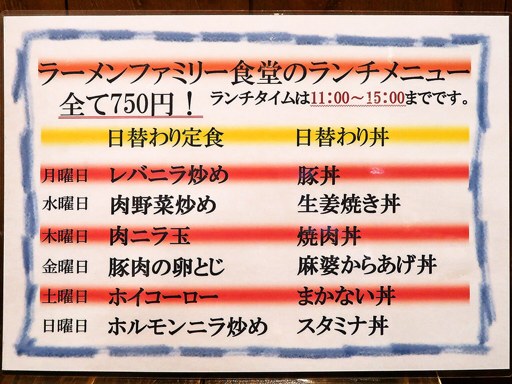 ラーメンファミリー食堂のランチメニュー
全て750円！ ランチタイムは11:00～15:00までです。
日替わり定食 日替わり丼
月曜日 レバニラ炒め 豚丼
水曜日 肉野菜炒め 生姜焼き丼
木曜日 肉ニラ玉 焼肉丼
金曜日 豚肉の卵とじ 麻婆からあげ丼
土曜日 ホイコーロー まかない丼
日曜日 ホルモンニラ炒め スタミナ丼